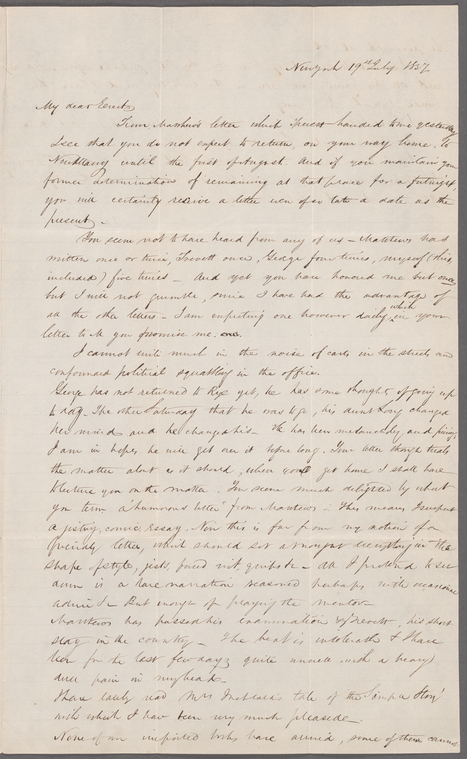 New York 19th July 1837
My dear Evert,
From Matthews' letter which Trevett handed to me yesterday
I see that you do not expect to return, on your way home, to
Newburg until the first of August. And if you maintain your
former determination of remaining at that place for a fortnight
you will certainly receive a letter even of so late a date as the
present.
You seem not to have heard from any of us – Matthews has
written once or twice, Trevett once, George four times, myself (this
included) five times – And yet you have honored me but once
but I will not grumble, since I have had the advantage of
all the other letters – I am expecting one however daily, which in your
letter to M. you promise me.
I cannot write much in the noise of carts in the streets and
confounded political squabbling in the office.
George has not returned to Rye yet, he has some thought of going up
to day. The other Saturday that he was to go, his aunt Long changed
her mind and he changed his – He has been melancholy and pining
I am in hopes he will get over it before long. Your letter though treats
the matter about as it should, when you get home I shall have
to lecture you on the matter. I'm some much delighted by what
you term a humorous letter from Matthews – This means I suspect
a jesting, comic essay. Now this is far from my notion of a
friendly letter, which should set at nought everything in the
shape of style, jest, quibble – All I pretend to
is a bare narration seasoned perhaps with occasional
advice – But enough of playing the mentor –
Matthews has passed his examination & Trevett, his short
stay in the country – The heat is intolerable & I have
been for the last few days quite unwell with a heavy
dull pain in my head –
I have lately read Mrs Inchbald's tale of the Simple Story
with which I have been very much pleased –
None of our imported books have arrived, some of them cannot